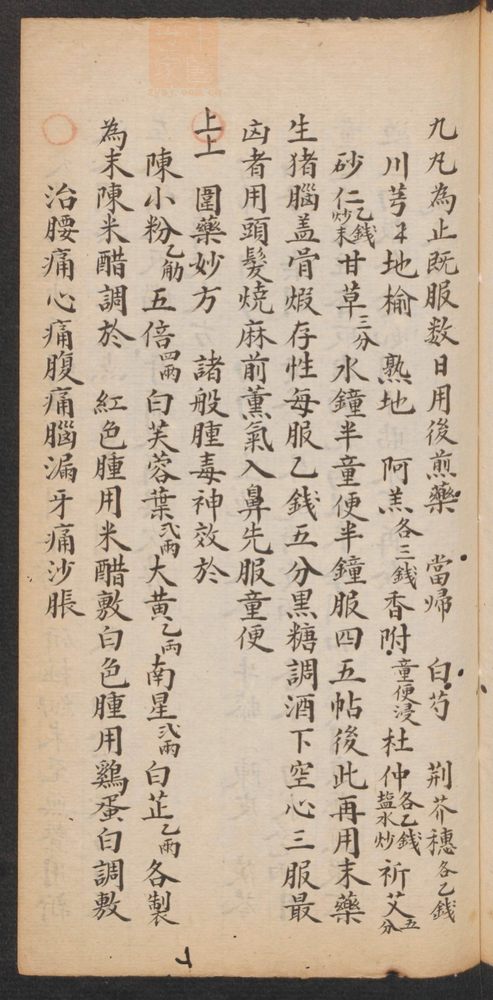 九凡為止既服数日用後煎藥 當歸 白芍 荆芥穗各乙錢
川芎 地榆 熟地 阿羔各三錢香附童便浸杜仲各乙錢盐水炒祈艾五分
砂仁乙錢炒末甘草三分水鐘半童便半鐘服四五帖後此再用末藥
生猪腦盖骨煅存性每服乙錢五分黑糖調酒下空心三服最
凶者用頭髮燒麻前薰氣入鼻先服童便
上上 圍藥妙方 諸般腫毒神效於
陳小粉乙觔五倍四兩白芙蓉葉弍兩大黄乙兩南星弍兩白芷乙兩各製
為末陳米醋調於 紅色腫用米醋敷白色腫用鷄蛋白調敷
治腰痛心痛腹痛腦漏牙痛沙脹